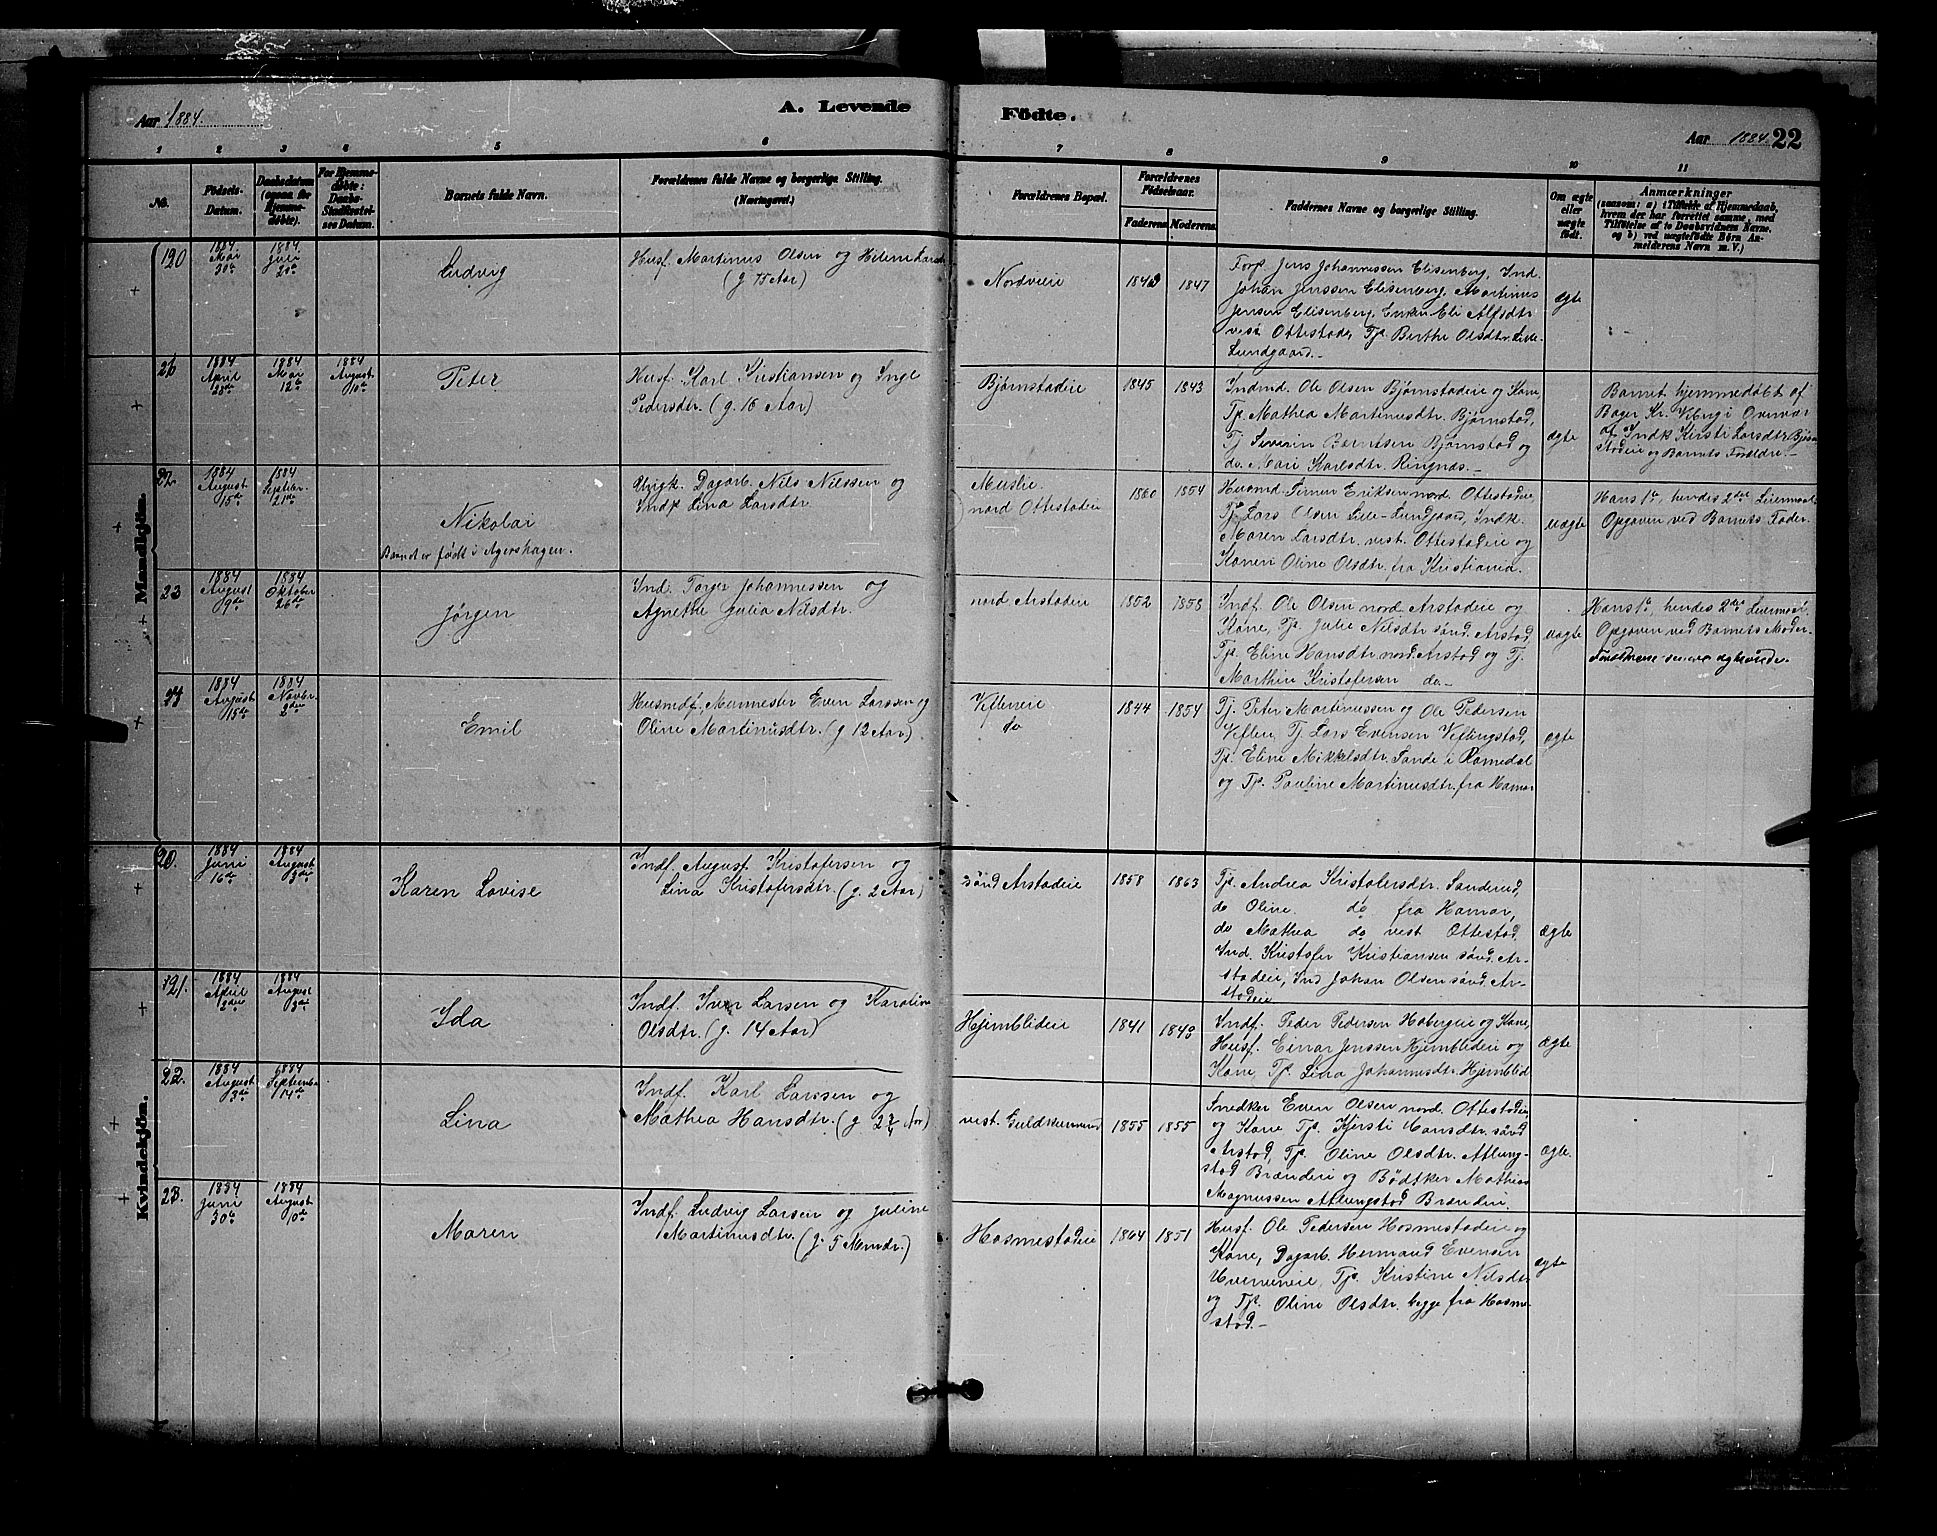 A. Levende
Födte.
Aar 1884.
Aar 1884. 22
1 2 3 4 5 6
7 8 9 10 11
No.
Födsels-Datum.
Daabsdatum (ogsaa for Hjemmedöbte).
For Hjemmedöbte: Daabs-Stadfæstelses Datum.
Barnets fulde Navn.
Forældrenes fulde Navne og borgerlige Stilling. (Næringsvei.)
Forældrenes Bopæl.
Forældrenes Födselsaar.
Faderens. Moderens.
Faddernes Navne og borgerlige Stilling.
Om ægte eller uægte födt.
Anmærkninger
(saasom: a) i Tilfælde af Hjemmedaab,
hvem der har forrettet samme, med
Tilföielse af to Daabsvidners Navne,
og b) ved uægtefödte Börn Anmelderens Navn m. V.)
Mandkjön.
20 1884 Mai 20de 1884 Juli 20de
Ludvig
Husf. Martinus Olsen og Helene
(g. 15 Aar)
Nordvieie
1847
Forp. Jens Johannessen Elisenberg, Ind.
Johan Jenssen Elisenberg, Martinus
Jensen Elisenberg, Enken Eli Alfsdtr
vest. Ottestad, Tp. Berthe Olsdtr. Lille-
Lundgaard.-
ægte
21 1884 April 1884 Mai 12te 1884 August 10de
Peter
Husf. Karl Kristiansen og Inge
Pedersdtr. (g. 16 Aar)
Bjørnstadeie
1845 1843
Indmd. Ole Olsen Bjørnstadeie og Kone,
Tp. Mathea Martinusdtr. Bjørnstad,
Tj. Severin Berntsen Bjørnstad og
do. Mari Karlsdtr. Ringnæs.-
ægte
Barnet hjemmedøbt af
Bager Kr. i Overvær
af Indk. Kirsti Larsdtr. Bjørn-
stadeie og Barnets Forældre.-
22 1884 August 15de 1884 Septbr. 21de
Nikolai
Barnet er født i Agershagen.
Ungk. Dagarb. Nils Nilssen og
Indp. Lina Larsdtr.
nord Ottestadeie
1860 1854
Husmd. Simen Eriksen nord. Ottestadeie
Tj. Lars Olsen Lille-Lundgaard, Indk.
Maren Larsdtr. vest. Ottestadeie og
Konen Oline Olsdtr. fra Kristiania.
uægte
Hans 1ste, hendes 2det Leiermaal.
Opgaven ved Barnets Fader.
23 1884 August 9de 1884 Oktober 26de
Jørgen
Ind. Torger Johannessen og
Agnethe Julia Nilsdtr.
nord Arstadeie
1852
Indf. Ole Olsen nord Arstadeie og
Kone, Tp. Julie Nilsdtr sønd. Arstad,
Tp. Eline Hansdtr. nord. Arstad og Tj.
Martin Kristofersen do.-
uægte
Hans 1ste, hendes 2det Leiermaal.
Opgaven ved Barnets Moder.
Forældrene senere ægteviede.
24 1884 August 15de 1884 Novbr. 2den
Emil
Husmdf. Murmester Even Larssen og
Oline Martinusdtr. (g. 12 Aar)
Vefleneie
do
1844 1854
Tj. Peter Martinussen og Ole Pedersen
Veflen, Tj. Lars Evensen Veflingstad,
Tp. Eline Mikkelsdtr. Sande i Romedal
og Tp. Pauline Martinusdtr. fra Hamar
ægte
Kvindekjön.
20. 1884 Juni 16de 1884 August 3de
Karen Lovise
Indf. August Kristofersen og
Lina Kristofersdtr. (g. 2 Aar)
sønd Arstadeie
1858 1863
Tp. Andrea Kristofersdtr. Sanderud,
do Oline do fra Hamar,
do Mathea do vest Ottestad.
Ind. Kristofer Kristiansen sønd. Ar-
stadeie, Ind Johan Olsen sønd. Ar-
stadeie
ægte
21. 1884 April 2den 1884 August 3de
Ida
Indf. Iver Larsen og Karoline
Olsdtr (g. 14 Aar)
Hjemblideie
1841
Indf. Peder Pedersen Hobergeie og Kone,
Husf. Einar Jenssen Hjemblideie og
Kone, Tp. Lina Johannesdtr. Hjemblid
ægte
22. 1884 August 3de 1884 Septembr. 14de
Lina
Indf. Karl Larssen og
Mathea Hansdtr.
vest.
1855 1855
Snedker Even Olsen nord. Ottestadeie
og Kone Tp. Kjersti Hansdtr. sønd
Arstad, Tp. Oline Olsdtr. Atlung-
stad Brænderi og Bødtker Mathias
Magnussen Atlungstad Brænderi.
ægte.
23. 1884 Juni 30te 1884 August 10de
Maren
Indf. Ludvig Larsen og Juline
Martinusdtr. (g. 5 Mndr.)
Hosmestadeie
1864 1851
Husf. Ole Pedersen Hosmestadeie og
Kone, Dagarb. Hermand Evensen
Tp. Kristine Nilsdtr
og Tp. Oline Olsdtr. begge fra Hosme-
stad.-
ægte